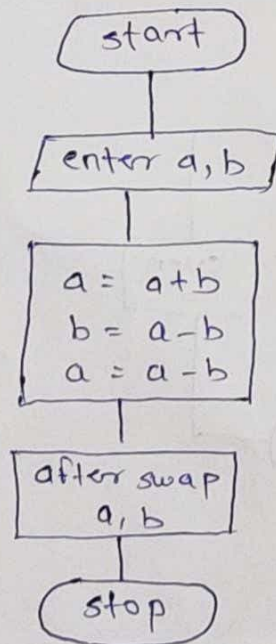 start
enter a, b
a = a+b
b = a-b
a = a-b
after swap
a, b
stop